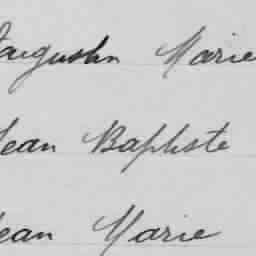 Augustin Marie
Jean Baptiste
Jean Marie